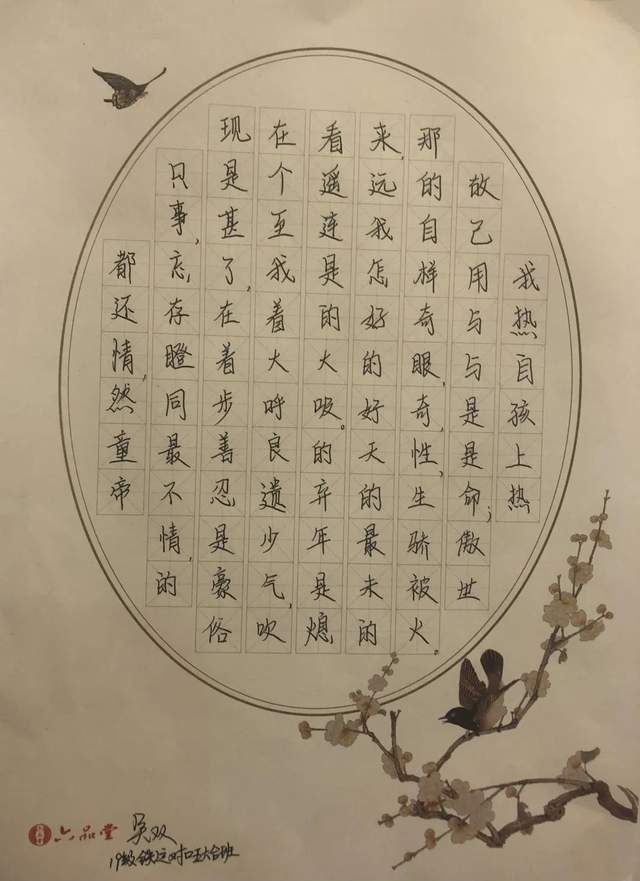 现在看来,那
只是个遥远的故
事,甚至连我自己
都忘了,我是怎样用我
还存在着的好奇与热
情,瞪着大大的眼,与自
然同步呼吸。好奇,是孩
童最善良的天性,是上
帝不忍遗弃的生命;热
情,是少年最骄傲
的豪气,是未被世
俗吹熄的火。
六品堂 吴双
19级铁运对口